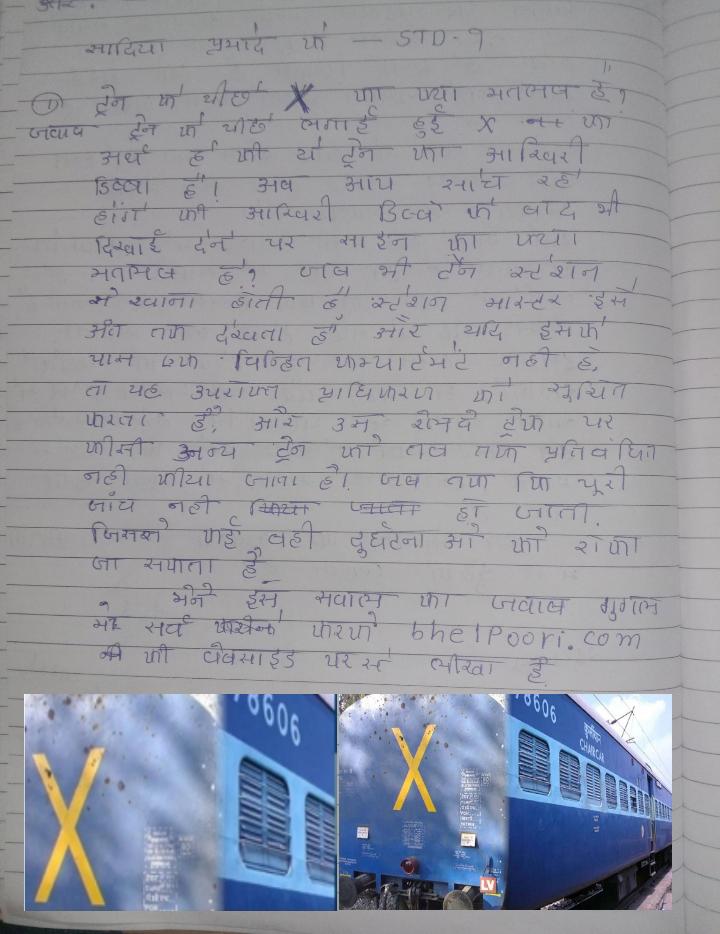 सादिया प्रमोद के — STD-9
① ट्रेन के पीछे X का क्या मतलब है?
जवाब ट्रेन के पीछे लगाई हुई X का
अर्थ है की ये ट्रेन का आखिरी
डिब्बा है। अब आप सोच रहे
होंगे की आखिरी डिब्बे के बाद भी
दिखाई देने पर साइन का क्या
मतलब है? जब भी ट्रेन स्टेशन
से रवाना होती है स्टेशन मास्टर इसे
अंत तक देखता है और यदि इसके
पास एक चिन्हित कम्पार्टमेंट नही है,
तो यह उपरोक्त प्राधिकरण को सूचित
करता है, और उस रेलवे ट्रेक पर
कीसी अन्य ट्रेन को तब तक प्रतिबंधित
नही कीया जाता है। जब तक कि पूरी
जांच नही हो जाती.
जिससे कई बडी दुर्घटना ओ को रोका
जा सकता है
मैने इस सवाल का जवाब गुगल
मे सर्च करके bhelpoori.com
की वेबसाइड पर से लीखा है.
78606
78606
कुर्सीयान
CHAIR CAR
LV